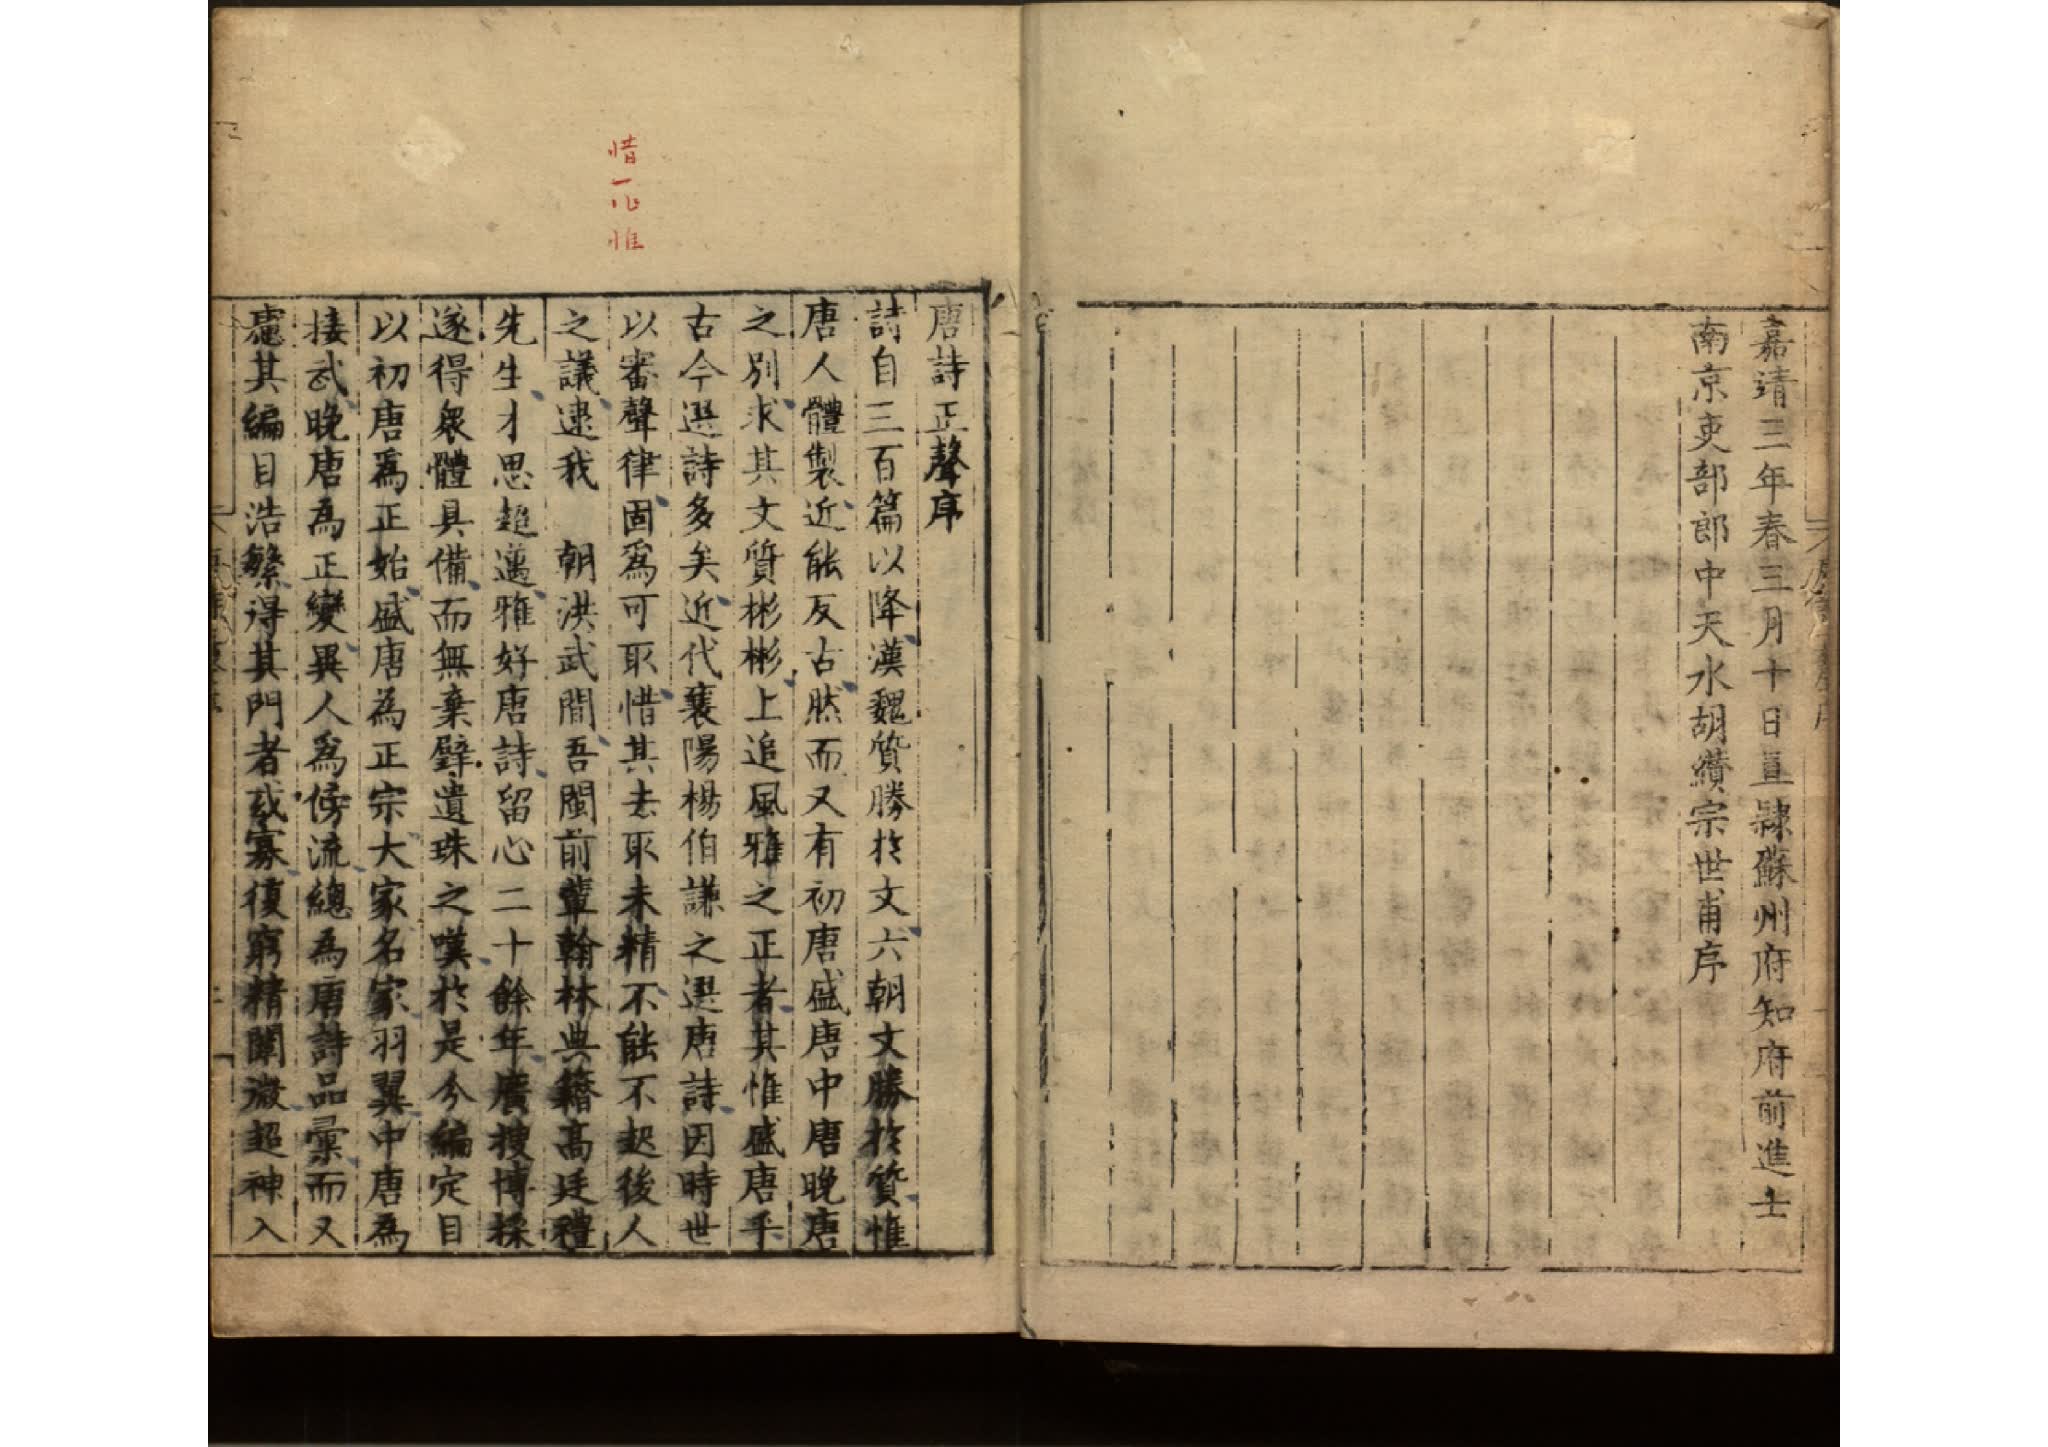 嘉靖三年春三月十日直隷蘇州府知府前進士
南京吏部郎中天水胡纘宗世甫序
惜一作惟
唐詩正聲序
詩自三百篇以降漢魏質勝於文六朝文勝於質惟
唐人體製近能反古然而又有初唐盛唐中唐晚唐
之別求其文質彬彬上追風雅之正者其惟盛唐乎
古今選詩多矣近代襄陽楊伯謙之選唐詩因時世
以審聲律固爲可取惜其去取未精不能不起後人
之議逮我 朝洪武間吾閩前輩翰林典籍高廷禮
先生才思超邁雅好唐詩留心二十餘年廣搜博採
遂得衆體具備而無棄璧遺珠之嘆於是分編定目
以初唐爲正始盛唐為正宗大家名家羽翼中唐為
接武晚唐為正變異人爲傍流總為唐詩品彙而又
慮其編目浩繁得其門者或寡復窮精闡微超神入